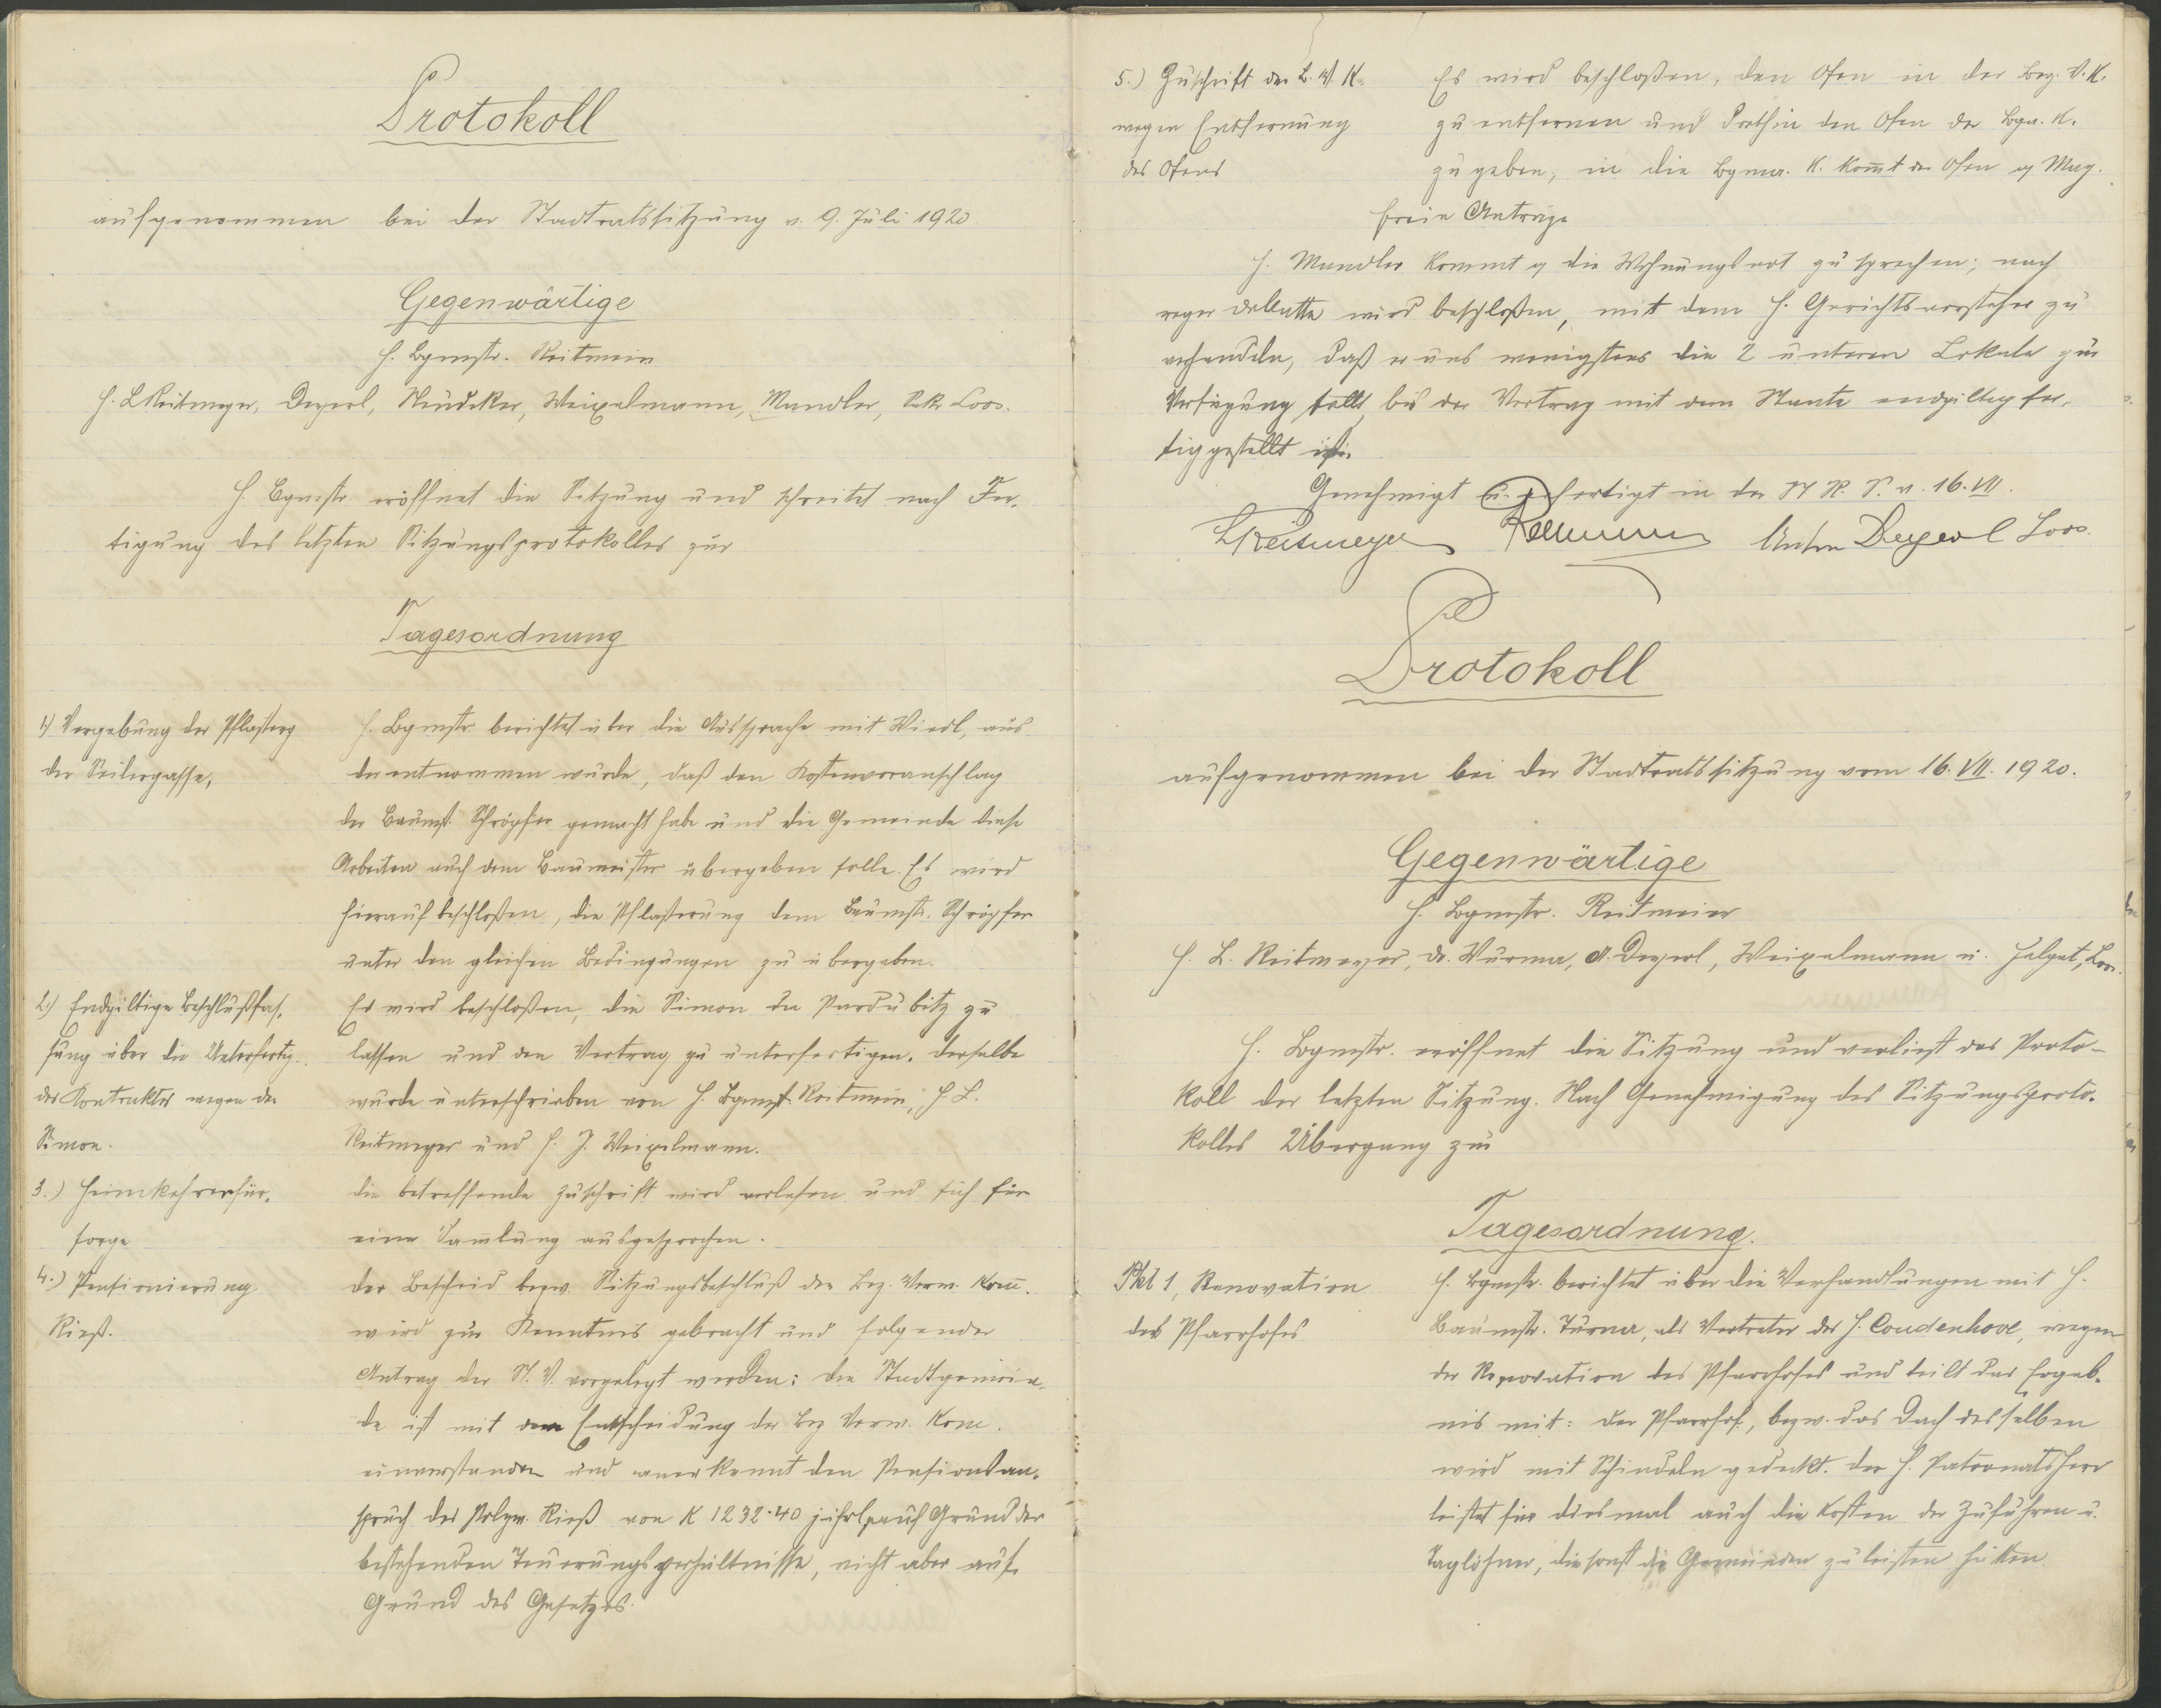 Protokoll
aufgenommen bei der Stadtratssitzung v. 9. Juli 1920.
Gegenwärtige
H. Bgmstr. Reitmeier
H. L Reitmeyer, Deyerl, Neudeker, Weixelmann, Mandler, Sekr. Loos.
H. Bgmstr. eröffnet die Sitzung und schreitet nach Fer-
tigung des letzten Sitzungsprotokolles zur
Tagesordnung
1) Vergebung der Pflasterg
der Seilergasse,
H. Bgmstr. berichtet über die Aussprache mit Wiedl, aus
der entnommen wurde, daß den Kostenvoranschlag
der Baumst. Schröpfer gemacht habe und die Gemeinde diese
Arbeiten auch dem Baumeister übergeben solle. Es wird
hierauf beschloßen, die Pflasterung dem Baumstr. Schröpfer
unter den gleichen Bedingungen zu übergeben.
2.) Endgiltige Beschlußfas-
sung über die Unterfertig.
des Kontraktes wegen der
Simon.
Es wird beschloßen, die Simon in Pardubitz zu
lassen und den Vertrag zu unterfertigen. Derselbe
wurde unterschrieben von H. Bgmst. Reitmeier, H. L.
Reitmeyer und H. J. Weixelmann.
3.) Heimkehrerfür-
sorge
die betreffende Zuschrift wird verlesen und sich für
eine Sam̄lung ausgesprochen.
4.) Pensionierung
Rieß.
der Bescheid bezw. Sitzungsbeschluß der Bez. Verw. Kom̄.
wird zur Kenntnis gebracht und folgender
Antrag der St. V. vorgelegt werden: die Stadtgemein-
de ist mit der Entscheidung der Bez Verw. Kom.
einverstanden und anerkennt den Pensionsan-
spruch des Polzw. Rieß von K 1232·40 jährl. auf Grund der
bestehenden Teuerungsverhältnisse, nicht aber auf
Grund des Gesetzes.
5.) Zuschrift der B. V. K.
wegen Entfernung
des Ofens
Es wird beschloßen, den Ofen in der Bez. V. K.
zu entfernen und dorthin den Ofen der Bgm. K.
zu geben; in die Bgmstr. K. kom̄t der Ofen v. Mag.
freie Anträge
H. Mandler kommt auf die Wohnungsnot zu sprechen; nach
reger Debatte wird beschloßen, mit dem H. Gerichtsvorsteher zu
verhandeln, daß er uns wenigstens die 2 unteren Lokale zur
Verfügung stellt, bis der Vertrag mit dem Staate endgiltig fer-
tiggestellt ist.
Genehmigt u. gefertigt in der St R. S. v. 16. VII.
LReitmeyer Reitmeier Anton Deyerl Loos.
Protokoll
aufgenommen bei der Stadtratssitzung vom 16. VII. 1920.
Gegenwärtige
H. Bgmstr. Reitmeier
H. L. Reitmeyer, Dr. Wurma, A. Deyerl, Weixelmann u. Loos.
H. Bgmstr. eröffnet die Sitzung und verliest das Proto-
koll der letzten Sitzung. Nach Genehmigung des Sitzungsproto-
kolles Übergang zur
Tagesordnung.
Pkt 1, Renovation
des Pfarrhofes
H. Bgmstr. berichtet über die Verhandlungen mit H.
Baumstr. Turner, als Vertreter des H. Coudenhove, wegen
der Renovation des Pfarrhofes und teilt das Ergeb-
nis mit: der Pfarrhof, bezw. das Dach desselben
wird mit Schindeln gedeckt. der H. Patronatsherr
leistet für diesmal auch die Kosten der Zufuhren u.
Taglöhner, die sonst die Gemeinden zu leisten hätten.